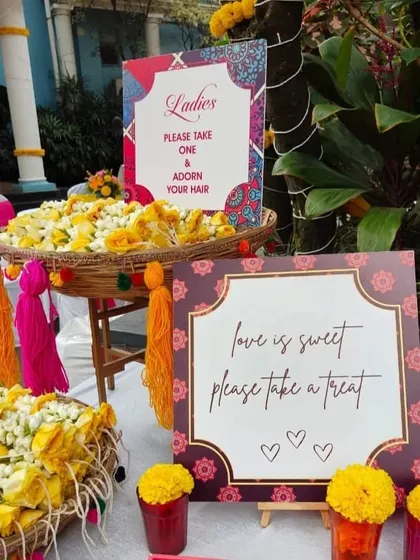 Ladies
PLEASE TAKE
ONE
&
ADORN
YOUR HAIR
love is sweet
please take a treat